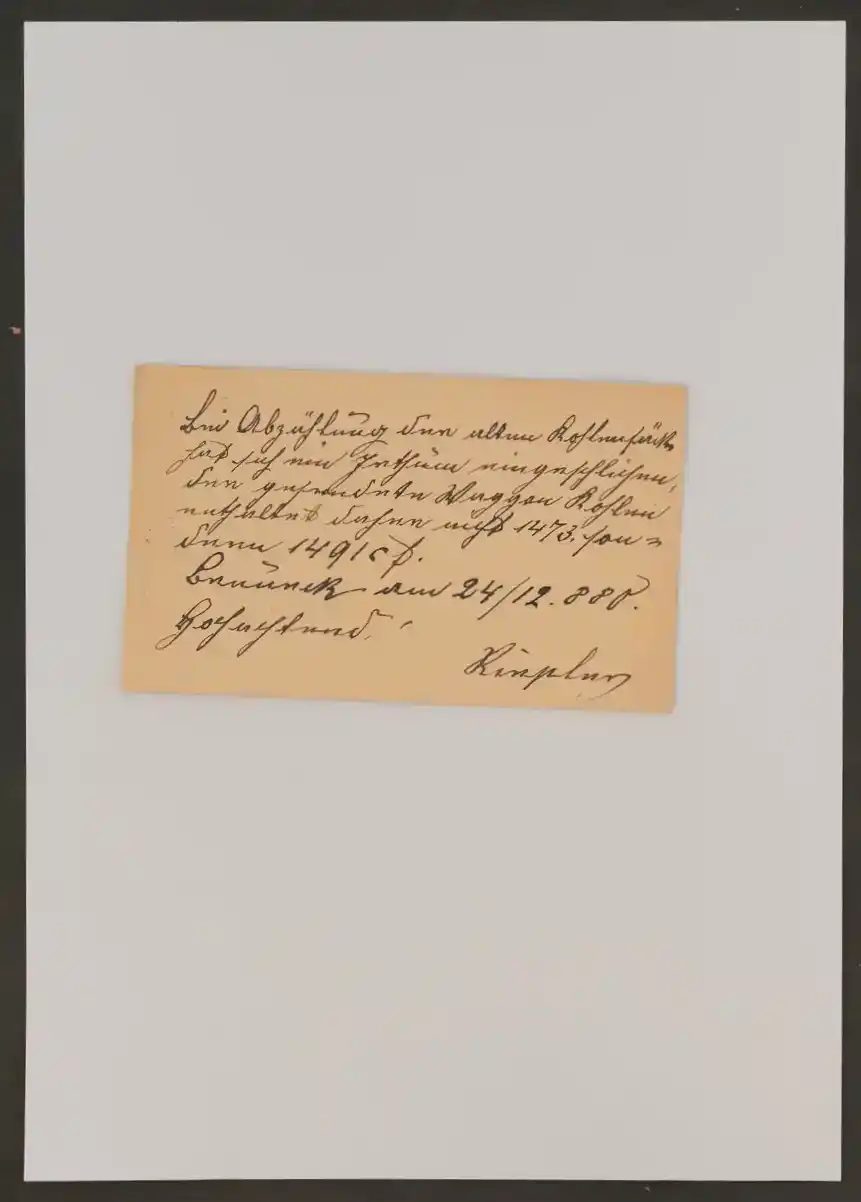 Bei Abzählung der alten Kohlensäcke
hat sich ein Irthum eingeschlichen,
der gesendete Waggon Kohlen
enthaltet daher nicht 1473, son=
dern 1491 c f.
Bruneck am 24/12. 880.
Hochachtend!